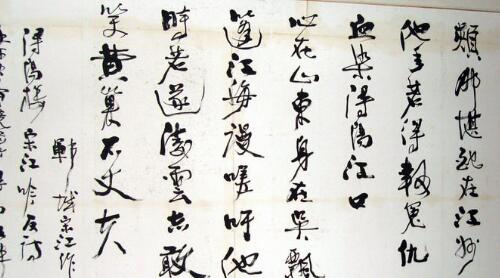 頰那堪配在江州
他年若得報冤仇
血染潯陽江口
心在山東身在吳飄
蓬江海漫嗟吁他
時若遂凌雲志敢
笑黃巢不丈夫
鄆城宋江作
潯陽樓宋江吟反詩